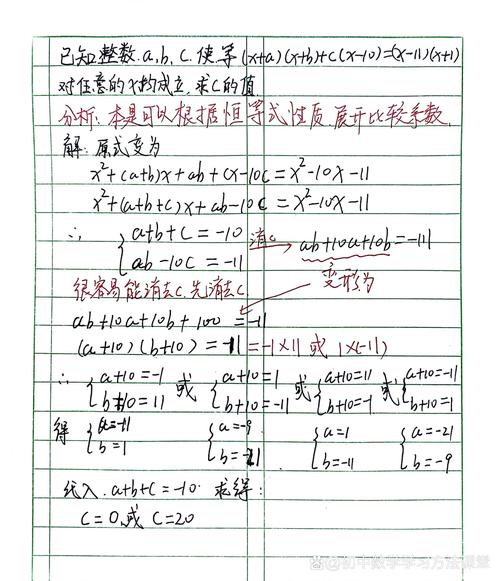 已知整数.a,b,c.使等(x+a)(x+b)+c(x-10)=(x-11)(x+1)
对任意的x均成立,求c的值.
分析:本题可以根据恒等式性质,展开比较系数.
解:原式变为
x²+(a+b)x+ab+cx-10c=x²-10x-11
x²+(a+b+c)x+ab-10c=x²-10x-11
∴ {a+b+c=-10 消c→ ab+10a+10b=-111
{ab-10c=-11 变形为
很容易能消去c.先消去c
ab+10a+10b+100=-11
(a+10)(b+10)=-11=-1×11或 1×(-11)
∴ {a+10=-1 或 {a+10=1 或 {a+10=11 或 {a+10=-11
{b+10=11 {b+10=-11 {b+10=-1 {b+10=1
得 {a=-11 {a=-9 {a=1 {a=-21
{b=1 {b=-21 {b=-11 {b=-9
代入.a+b+c=-10.求得:
c=0.或 c=20
@初中数学学习方法课堂